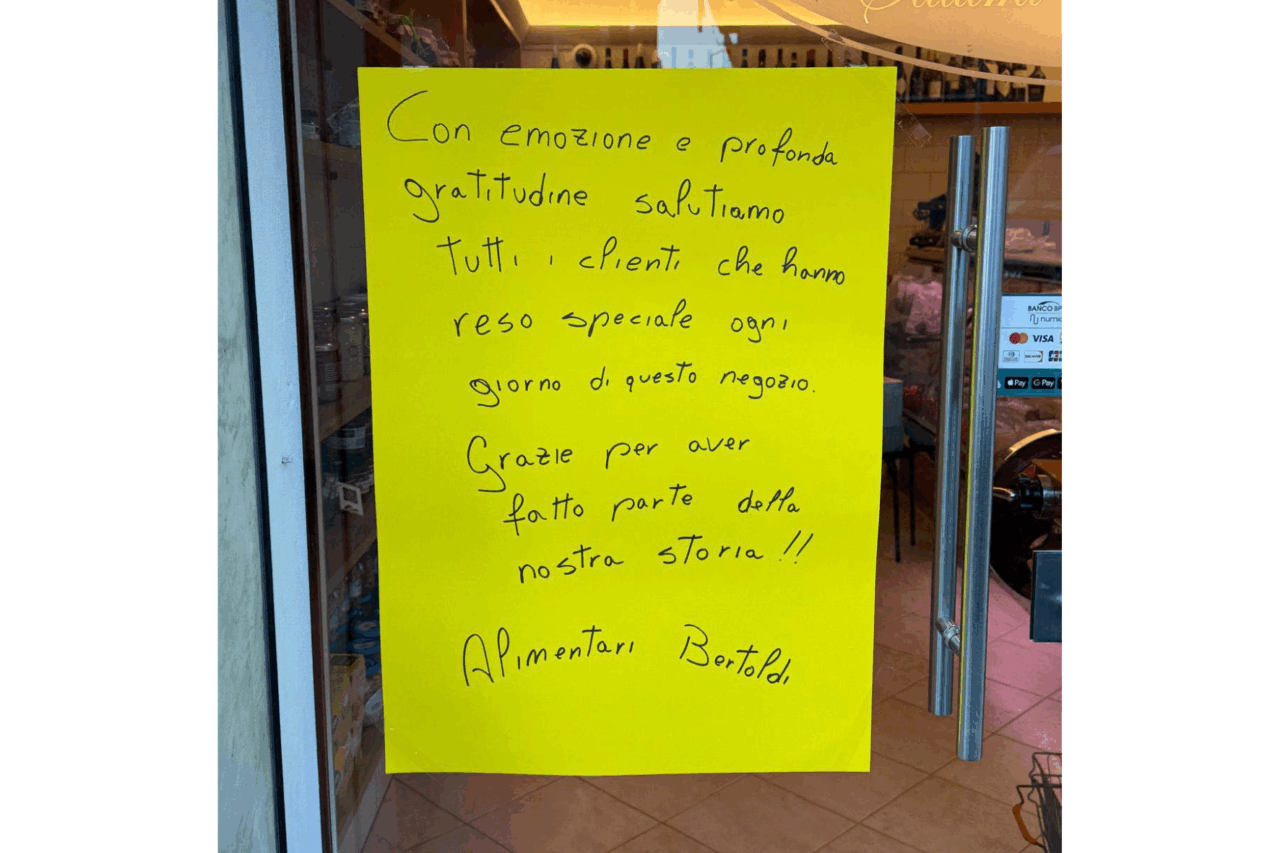 Con emozione e profonda
gratitudine salutiamo
tutti i clienti che hanno
reso speciale ogni
giorno di questo negozio.
Grazie per aver
fatto parte della
nostra storia!!
Alimentari Bertoldi
BANCO BP
numia
VISA
Pay
G Pay